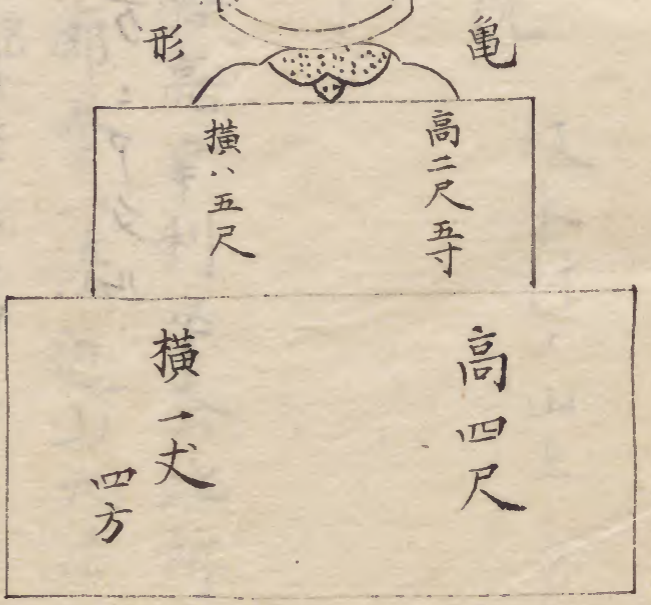 亀
形
高二尺五寸
横八五尺
高四尺
横一丈
四方